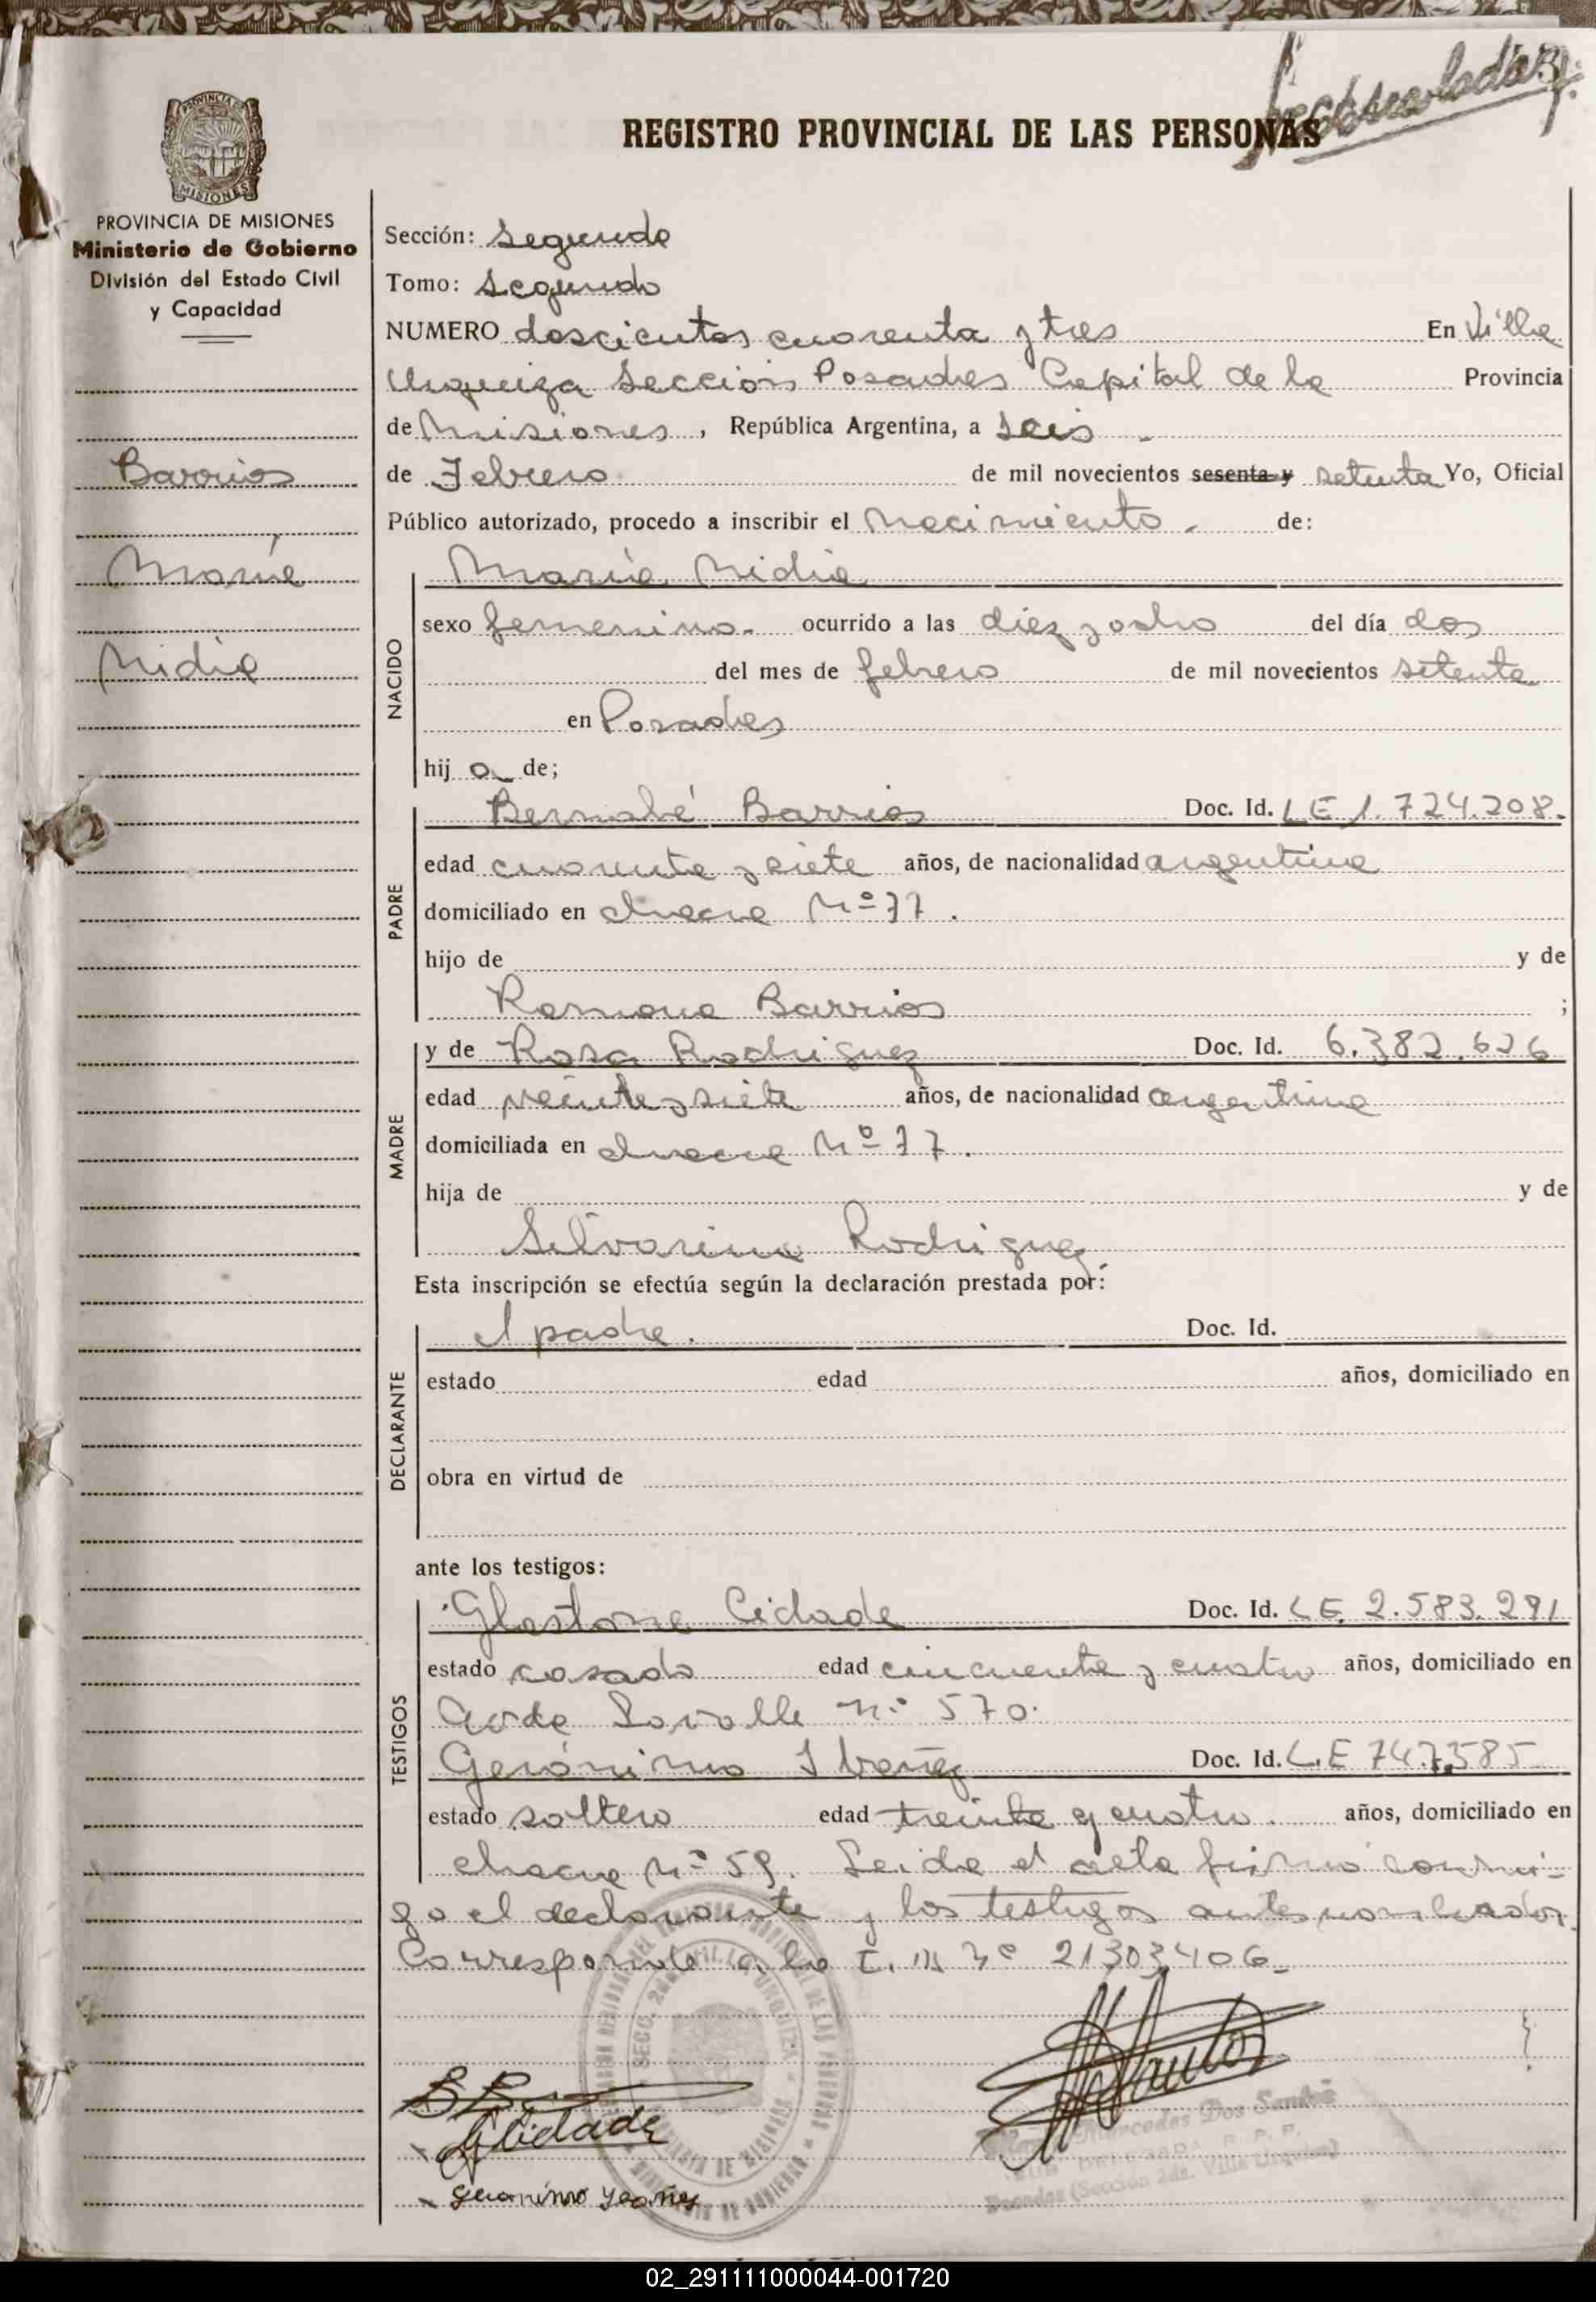 REGISTRO PROVINCIAL DE LAS PERSONAS
PROVINCIA DE MISIONES
Ministerio de Gobierno
División del Estado Civil
y Capacidad
Barrios
María
Nidia
Sección: Segunda
Tomo: Segundo
NUMERO doscientos cuarenta y tres En Villa
Urquiza Sección Posadas Capital de la Provincia
de Misiones, República Argentina, a Seis
de Febrero de mil novecientos sesenta y setenta Yo, Oficial
Público autorizado, procedo a inscribir el Nacimiento. de:
NACIDO
María Nidia
sexo femenino. ocurrido a las diez y ocho del día dos
del mes de febrero de mil novecientos setenta
en Posadas
hij a de;
PADRE
Bernabé Barrios Doc. Id. LE 1.724.208.
edad cuarenta y siete años, de nacionalidad argentina
domiciliado en chacra Nº 77.
hijo de y de
Ramona Barrios ;
MADRE
y de Rosa Rodriguez Doc. Id. 6.382.626
edad veinte y siete años, de nacionalidad argentina
domiciliada en chacra Nº 77.
hija de y de
Silvarina Rodriguez
Esta inscripción se efectúa según la declaración prestada por:
DECLARANTE
el padre. Doc. Id.
estado edad años, domiciliado en
obra en virtud de
ante los testigos:
TESTIGOS
Glastone Cidade Doc. Id. LE. 2.583.291
estado casado edad cincuenta y cuatro años, domiciliado en
Avda Lavalle nº 570.
Gerónimo Ibañez Doc. Id. L.E 747.585
estado soltero edad treinta y cuatro. años, domiciliado en
chacra Nº 59. Leida el acta firmó conmi-
go el declarante y los testigos antes nombrados.
Corresponde a la Nº 21303406-
GCidade
Geronimo Ybañez
Mercedes Dos Santos
SUB DELEGADA R. P. P.
Posadas (Sección 2da. Villa Urquiza)
02_291111000044-001720